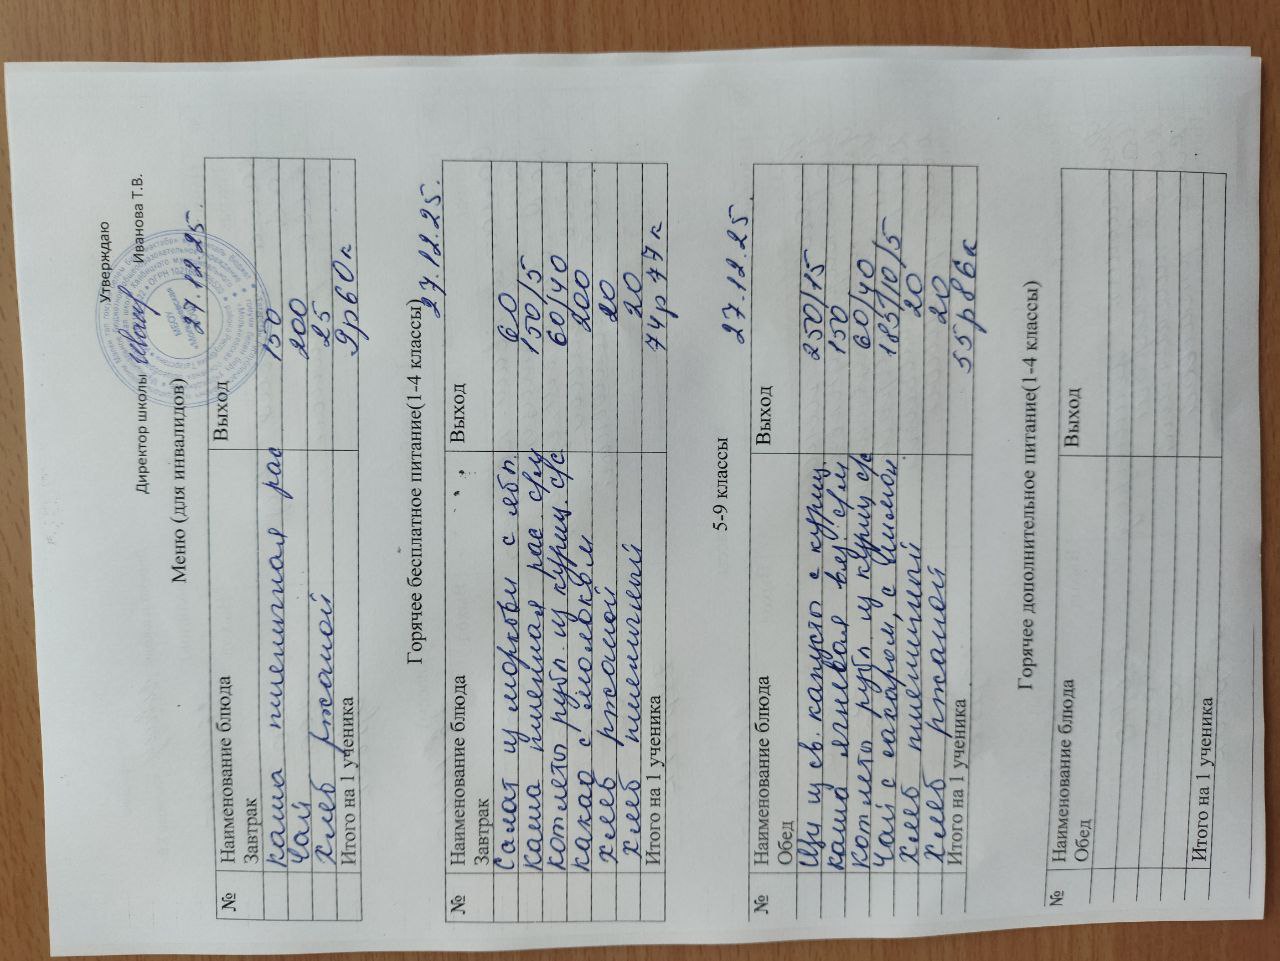 Утверждаю
Директор школы Иванова Т.В.
27.12.25.
Меню (для инвалидов)
№ Наименование блюда Выход
Завтрак
каша пшеничная рас 150
Чай 200
Хлеб ржаной 25
Итого на 1 ученика 9р60к
Горячее бесплатное питание(1-4 классы)
27.12.25.
№ Наименование блюда Выход
Завтрак
Салат из моркови с ябл. 60
Каша пшенная рас с/м 150/5
котлеты рубл. из куриц. с/с 60/40
какао с молоком 200
хлеб ржаной 20
хлеб пшеничный 20
Итого на 1 ученика 74р77к
5-9 классы 27.12.25
№ Наименование блюда Выход
Обед
Щи из св. капусты с куриц. 250/15
каша ячневая вяз. с/м 150
Котлеты рубл. из куриц с/с 60/40
Чай с сахаром, с лимон 185/10/5
Хлеб пшеничный 20
Хлеб ржаной 20
Итого на 1 ученика 55р86к
Горячее дополнительное питание(1-4 классы)
№ Наименование блюда Выход
Обед
Итого на 1 ученика